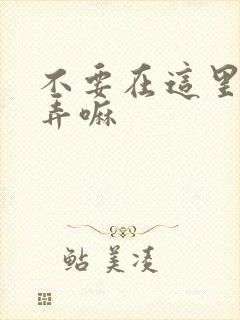 不要在這里
弄嘛
鮎美凌